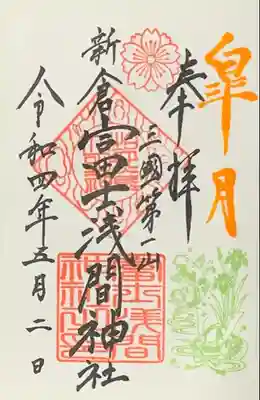 皐月
奉拝
三國第一山
新倉富士浅間神社
令和四年五月二日